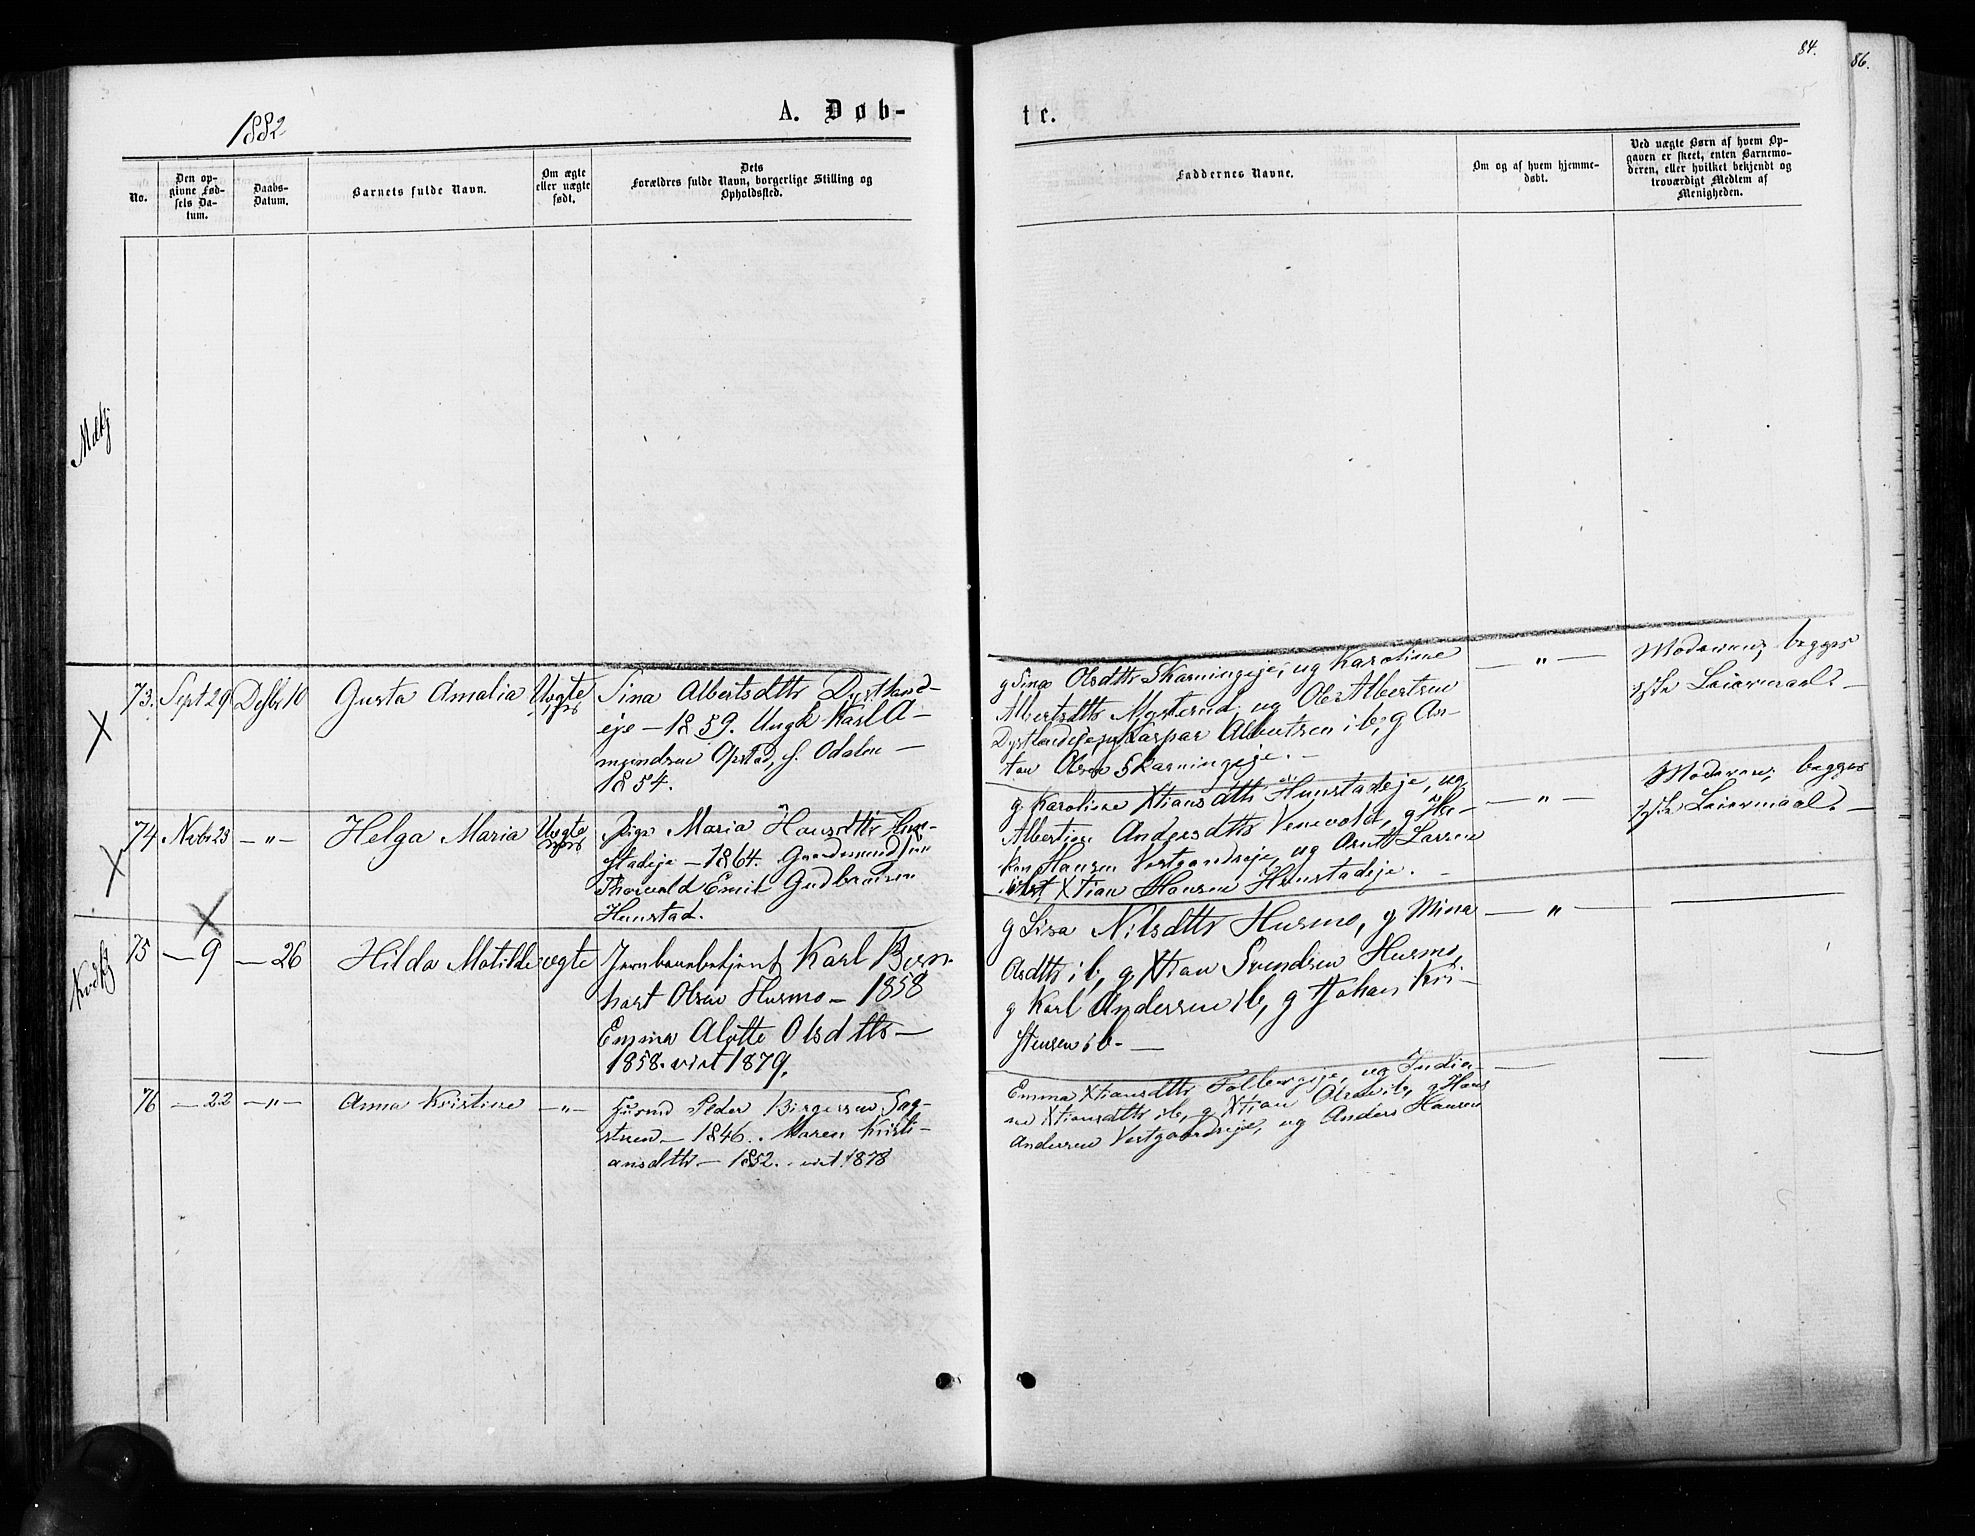 84.
86.
1882
A. Døb-
te.
No.
Den op-
givne Fød-
sels Da-
tum.
Daabs-
Datum.
Barnets fulde Navn.
Om ægte
eller uægte
født.
Dets
Forældres fulde Navn, borgerlige Stilling og
Opholdssted.
Faddernes Navne.
Om og af hvem hjemme-
døbt.
Ved uægte Børn af hvem Op-
gaven er skeet, enten Barnemo-
deren, eller hvilket bekjendt og
troværdigt Medlem af
Menigheden.
73. Sept 29 Dcbr 10 Gusta Amalia Uægte
Sina Albertsdtr Dystland-
eje - 1859. Ungk Karl A-
mundsen Opstad, S. Odalen -
1854.
g Sina Olsdtr Skarningeje, ug Karoline
Albertsdtr Mysterud, ug Ole Albertsen
Dystlandeje, ug Kaspar Albertsen ib, g An-
ton Olsen Skarningeje.
— " —
Moderen; begges
1ste Leiermaal -
74 Nvbr 23 — " — Helga Maria Uægte
Pige Maria Hansdtr Hun-
stadeje - 1864. Gaardmandssøn
Thorvald Emil Gudbrandsen
Hunstad.
g Karoline Xtiansdtr Hunstadeje, ug
Albertine Andersdtr Venevold, g Haa-
kon Hansen Vestgaardseje, ug Arnt Larsen
Xtian Hansen Hunstadeje.
— " —
Moderen; begges
1ste Leiermaal -
75 — 9 — 26 Hilda Matilde ægte
Jernbanebetjent Karl Bern-
hart Olsen Husmo - 1858
Emma Alette Olsdtr -
1858. viet 1879.
g Lisa Nilsdtr Husmo, g Mina
Olsdtr ib, g Xtian Svendsen Husmo,
g Karl Andersen ib, g Johan Kri-
stensen ib -
— " —
76 — 22 — " — Anna Kristine — " —
Husmd Peder Birgersen Sag-
stuen - 1846. Maren Kristi-
ansdtr - 1852. viet 1878
Emma Xtiansdtr Folbergeje, ug India-
na Xtiansdtr ib, g Xtian Olsen ib, g Hans
Andersen Vestgaardseje, ug Anders Hansen